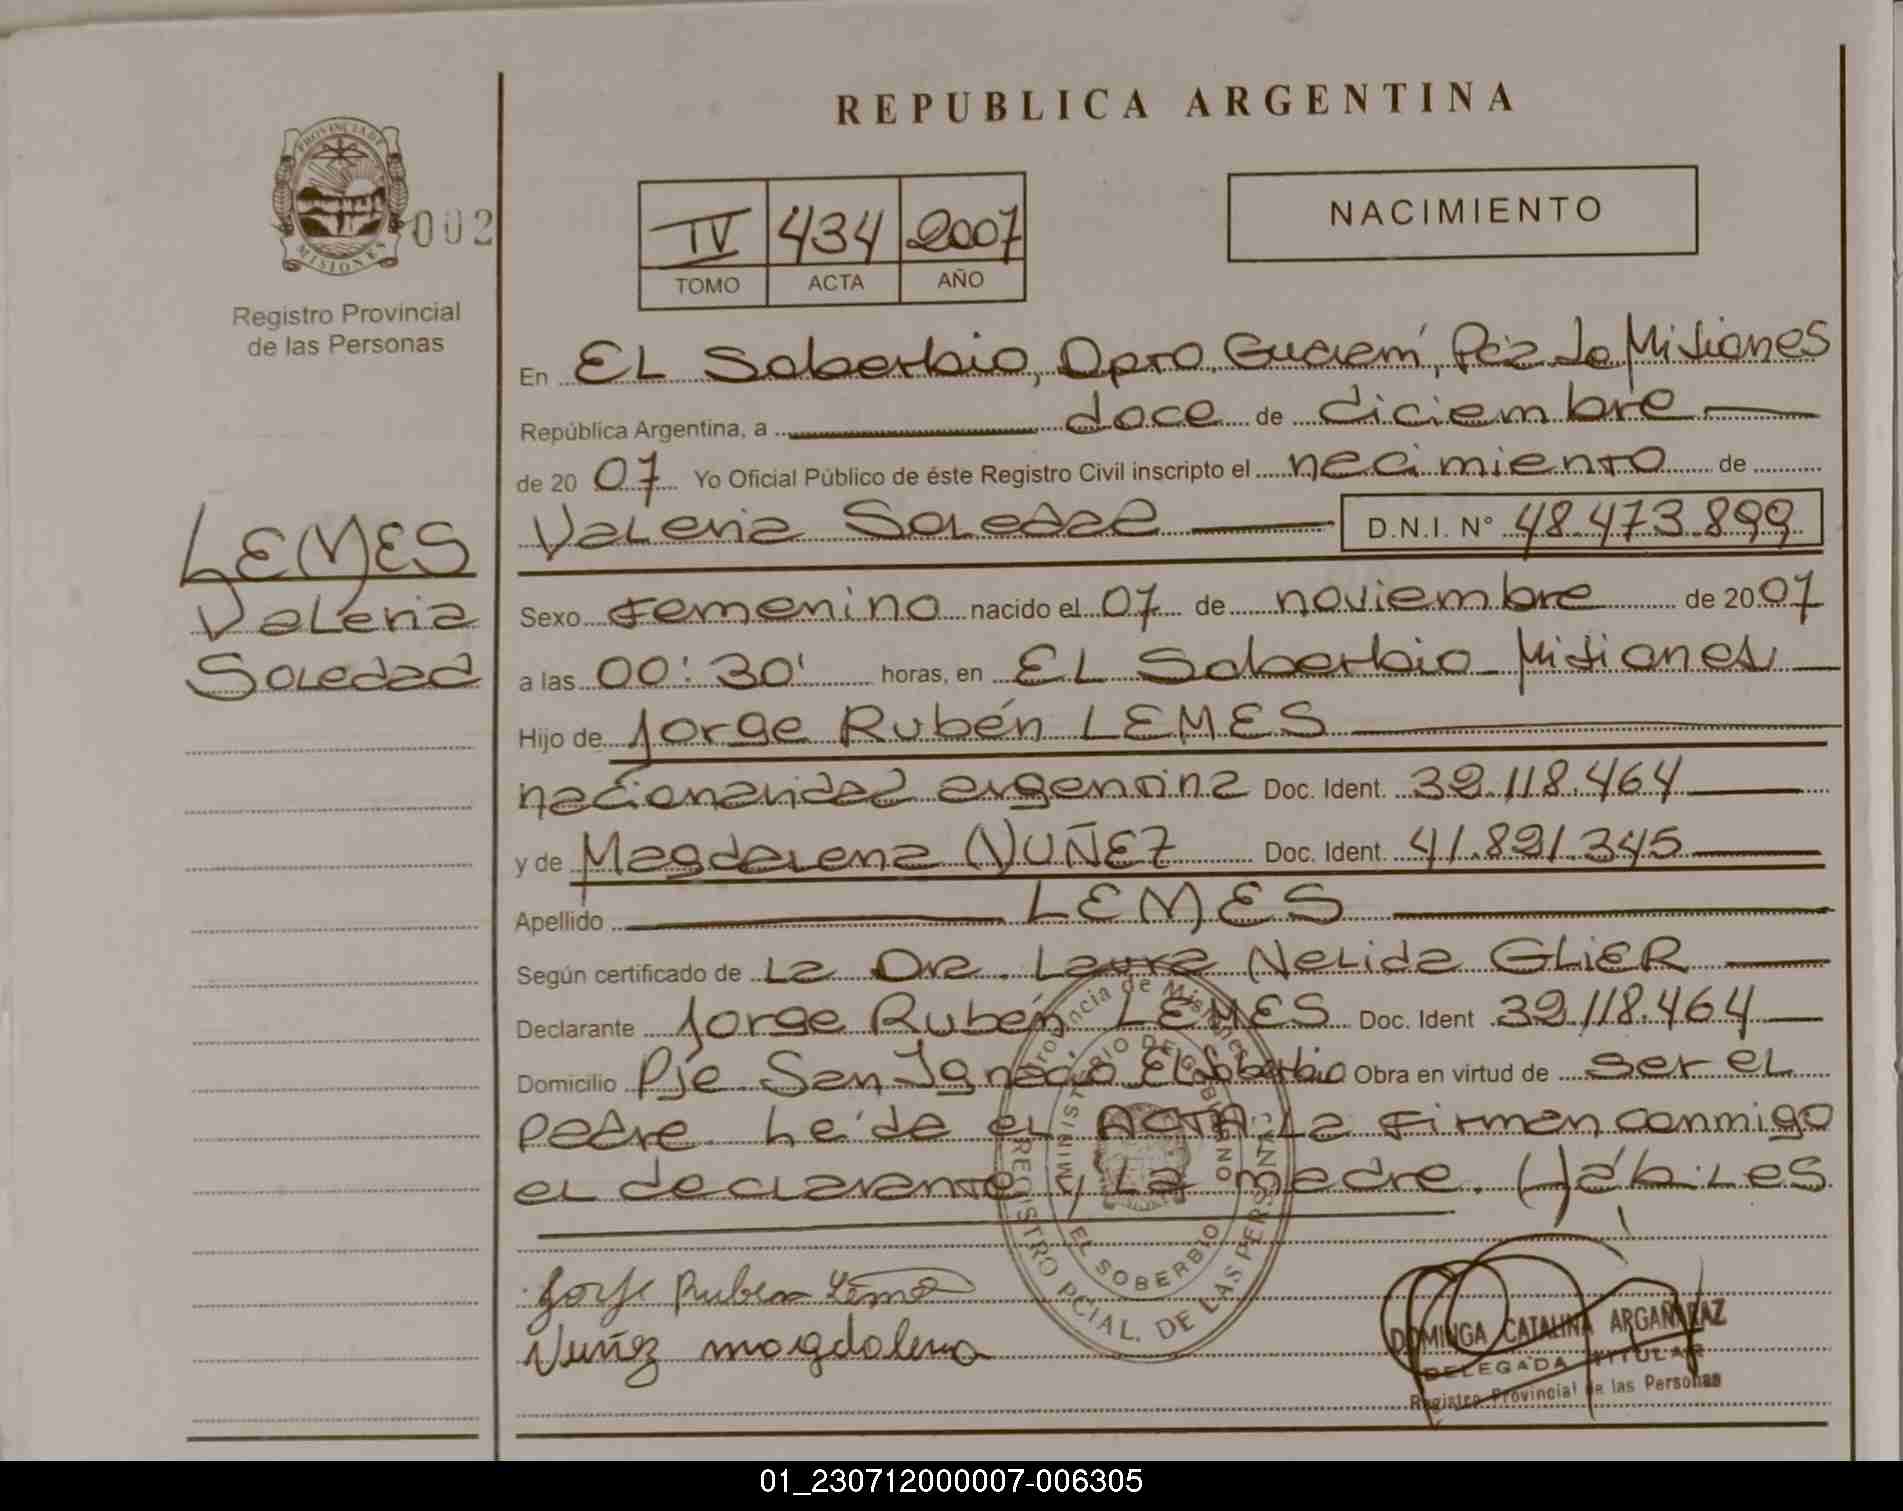 REPUBLICA ARGENTINA
PROVINCIA DE MISIONES
002
Registro Provincial
de las Personas
IV 434 2007
TOMO ACTA AÑO
NACIMIENTO
En EL Soberbio, Dpto. Guaraní, Pcia de Misiones
República Argentina, a doce de diciembre
de 2007 Yo Oficial Público de éste Registro Civil inscripto el nacimiento de
Valeria Soledad D.N.I. N° 48.473.899
LEMES
Valeria
Soledad
Sexo Femenino nacido el 07 de noviembre de 2007
a las 00:30' horas, en EL Soberbio Misiones
Hijo de Jorge Rubén LEMES
nacionalidad argentina Doc. Ident. 32.118.464
y de Magdalena NUÑEZ Doc. Ident. 41.821.345
Apellido LEMES
Según certificado de La Dra. Laura Nelida GLIER
Declarante Jorge Rubén LEMES Doc. Ident 32.118.464
Domicilio Pje San Ignacio El Soberbio Obra en virtud de ser el
padre. Leída el ACTA La firman conmigo
el declarante y La madre. Hábiles
Provincia de Misiones
MINISTERIO DE GOBIERNO
EL SOBERBIO
REGISTRO PCIAL. DE LAS PERSONAS
Jorge Ruben Lemes
Nuñez magdalena
DOMINGA CATALINA ARGAÑARAZ
DELEGADA TITULAR
Registro Provincial de las Personas
01_230712000007-006305